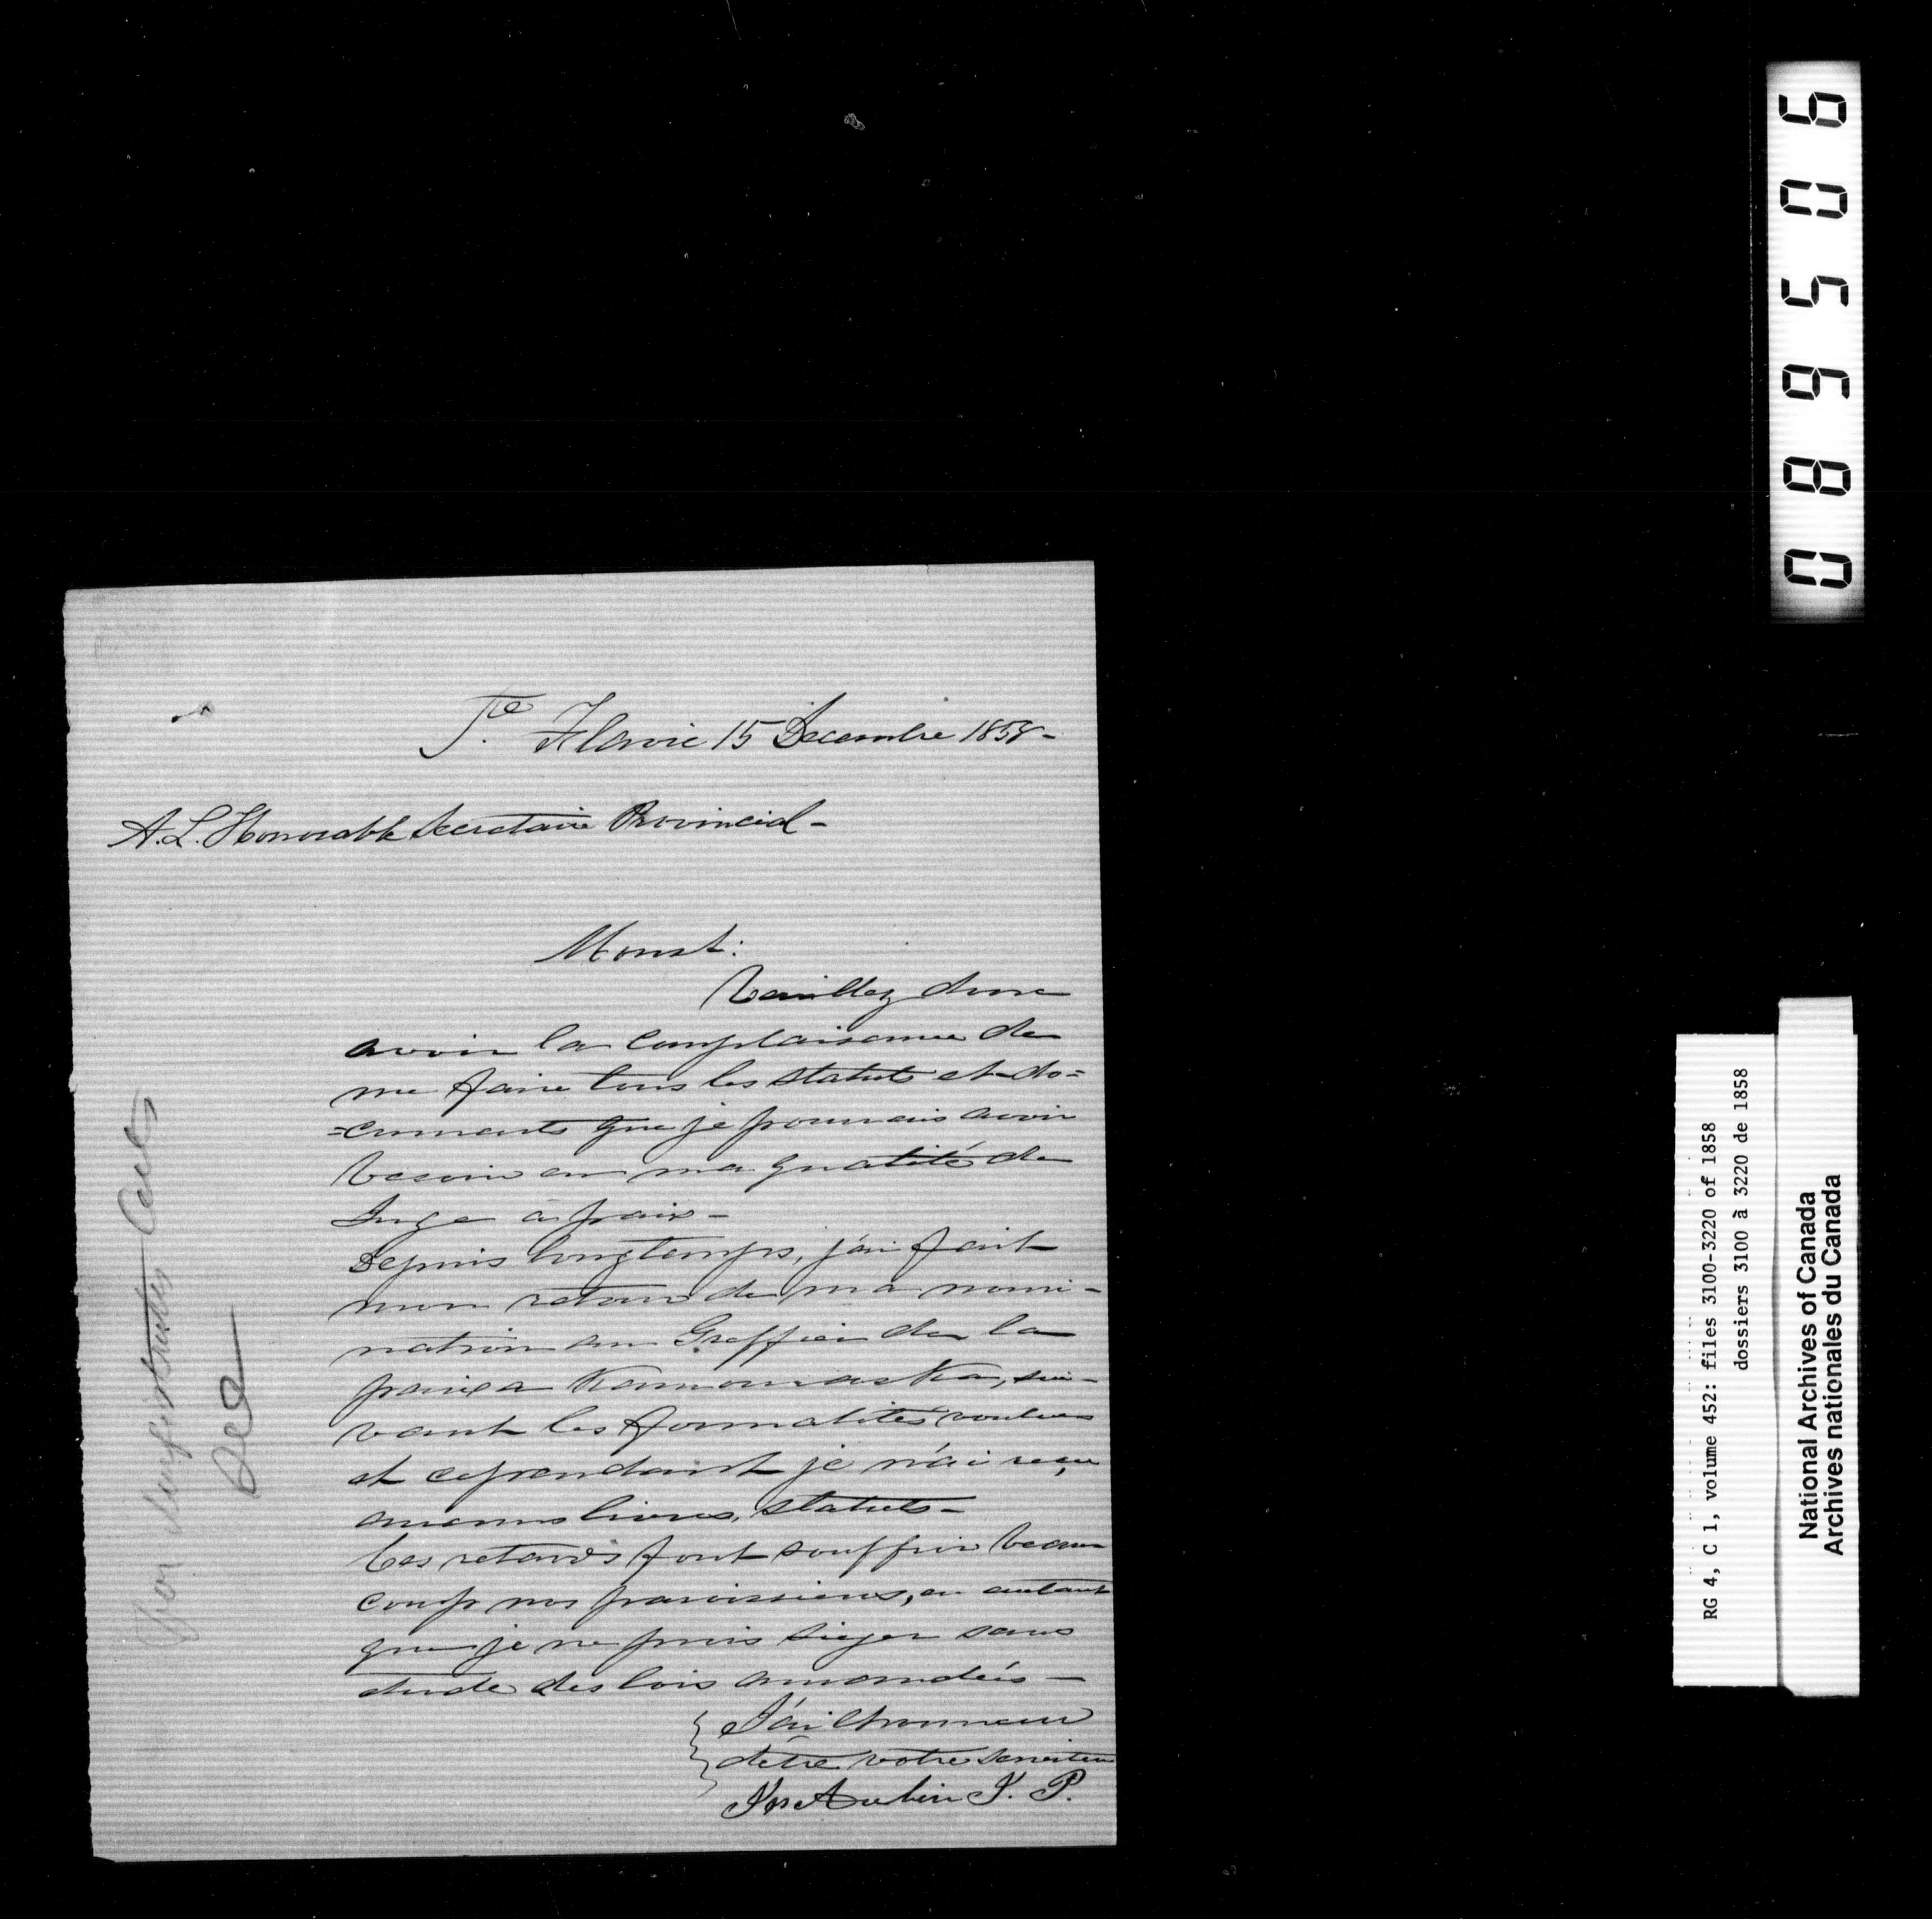 Ste Flavie 15 Decembre 1858-
A. L. Honorable Secretaire Provincial-
Monst:
Veuillez donc
avoir la complaisance de
me faire tous les statuts et do=
=cuments que je pourrais avoir
besoin en ma qualité de
Juge à paix -
Depuis longtemps, j'ai fait
mon retour de ma nomi-
nation au Greffier de la
paix a Kamouraska, sui-
vant les formalités voulues
et cependant je n'ai reçu
aucuns livres, statuts-
Ces retards font souffrir beau
coup nos paroissiens, en autant
que je ne puis sieger sans
etude des lois amandées -
J'ai l'honneur
d'être votre serviteur
Jos Aubin J. P.
089506
RG 4, C 1, volume 452: files 3100-3220 of 1858
dossiers 3100 à 3220 de 1858
National Archives of Canada
Archives nationales du Canada